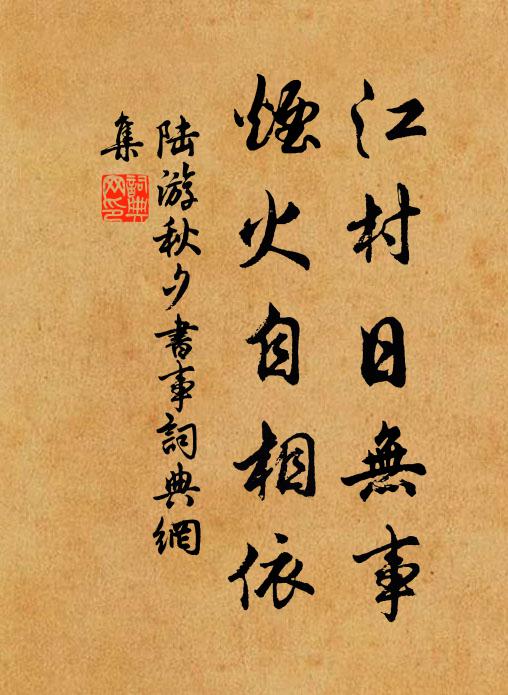 江村日無事
煙火自相依
陸游秋夕書事詞典網
集
詞典
网印